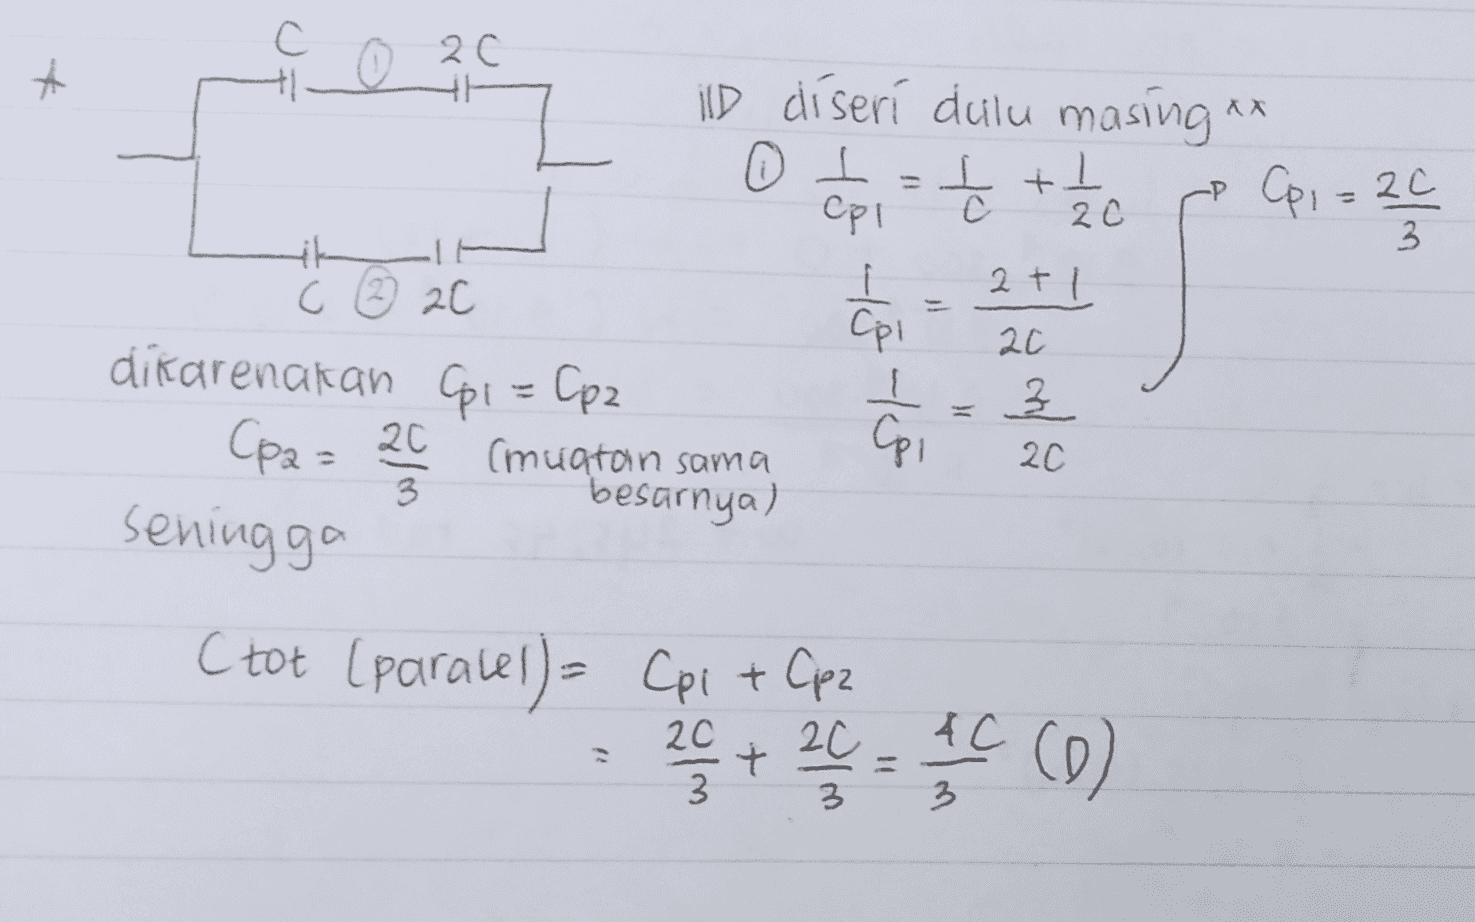 * C ① 2C
C ② 2C
→ diseri dulu masing ^^
① 1/Cp1 = 1/C + 1/2C → Cp1 = 2C/3
1/Cp1 = 2+1/2C
1/Cp1 = 3/2C
dikarenakan Cp1 = Cp2
Cp2 = 2C/3 (muatan sama
besarnya)
sehingga
C tot (paralel) = Cp1 + Cp2
= 2C/3 + 2C/3 = 4C/3 (D)